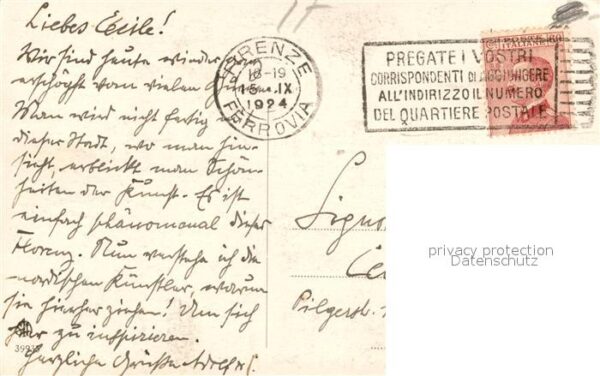 Liebes Cécile!
Wir sind heute wieder ganz
erschöpft vom vielen
Man wird nicht fertig in
dieser Stadt, wo man hin-
sieht, erblickt man Schön-
heiten der Kunst. Es ist
einfach phänomenal dieser
Florenz. Nun verstehe ich die
nordischen Künstler, warum
sie hierher ziehen! Um sich
hier zu inspizieren.
Herzliche Grüsse Adolf
39935
17
FIRENZE
18-19
15 IX
1924
FERROVIA
PREGATE I VOSTRI
CORRISPONDENTI DI AGGIUNGERE
ALL'INDIRIZZO IL NUMERO
DEL QUARTIERE POSTALE
POSTE ITALIANE 60
Signo
Ce
Pilgerst.
privacy protection
Datenschutz